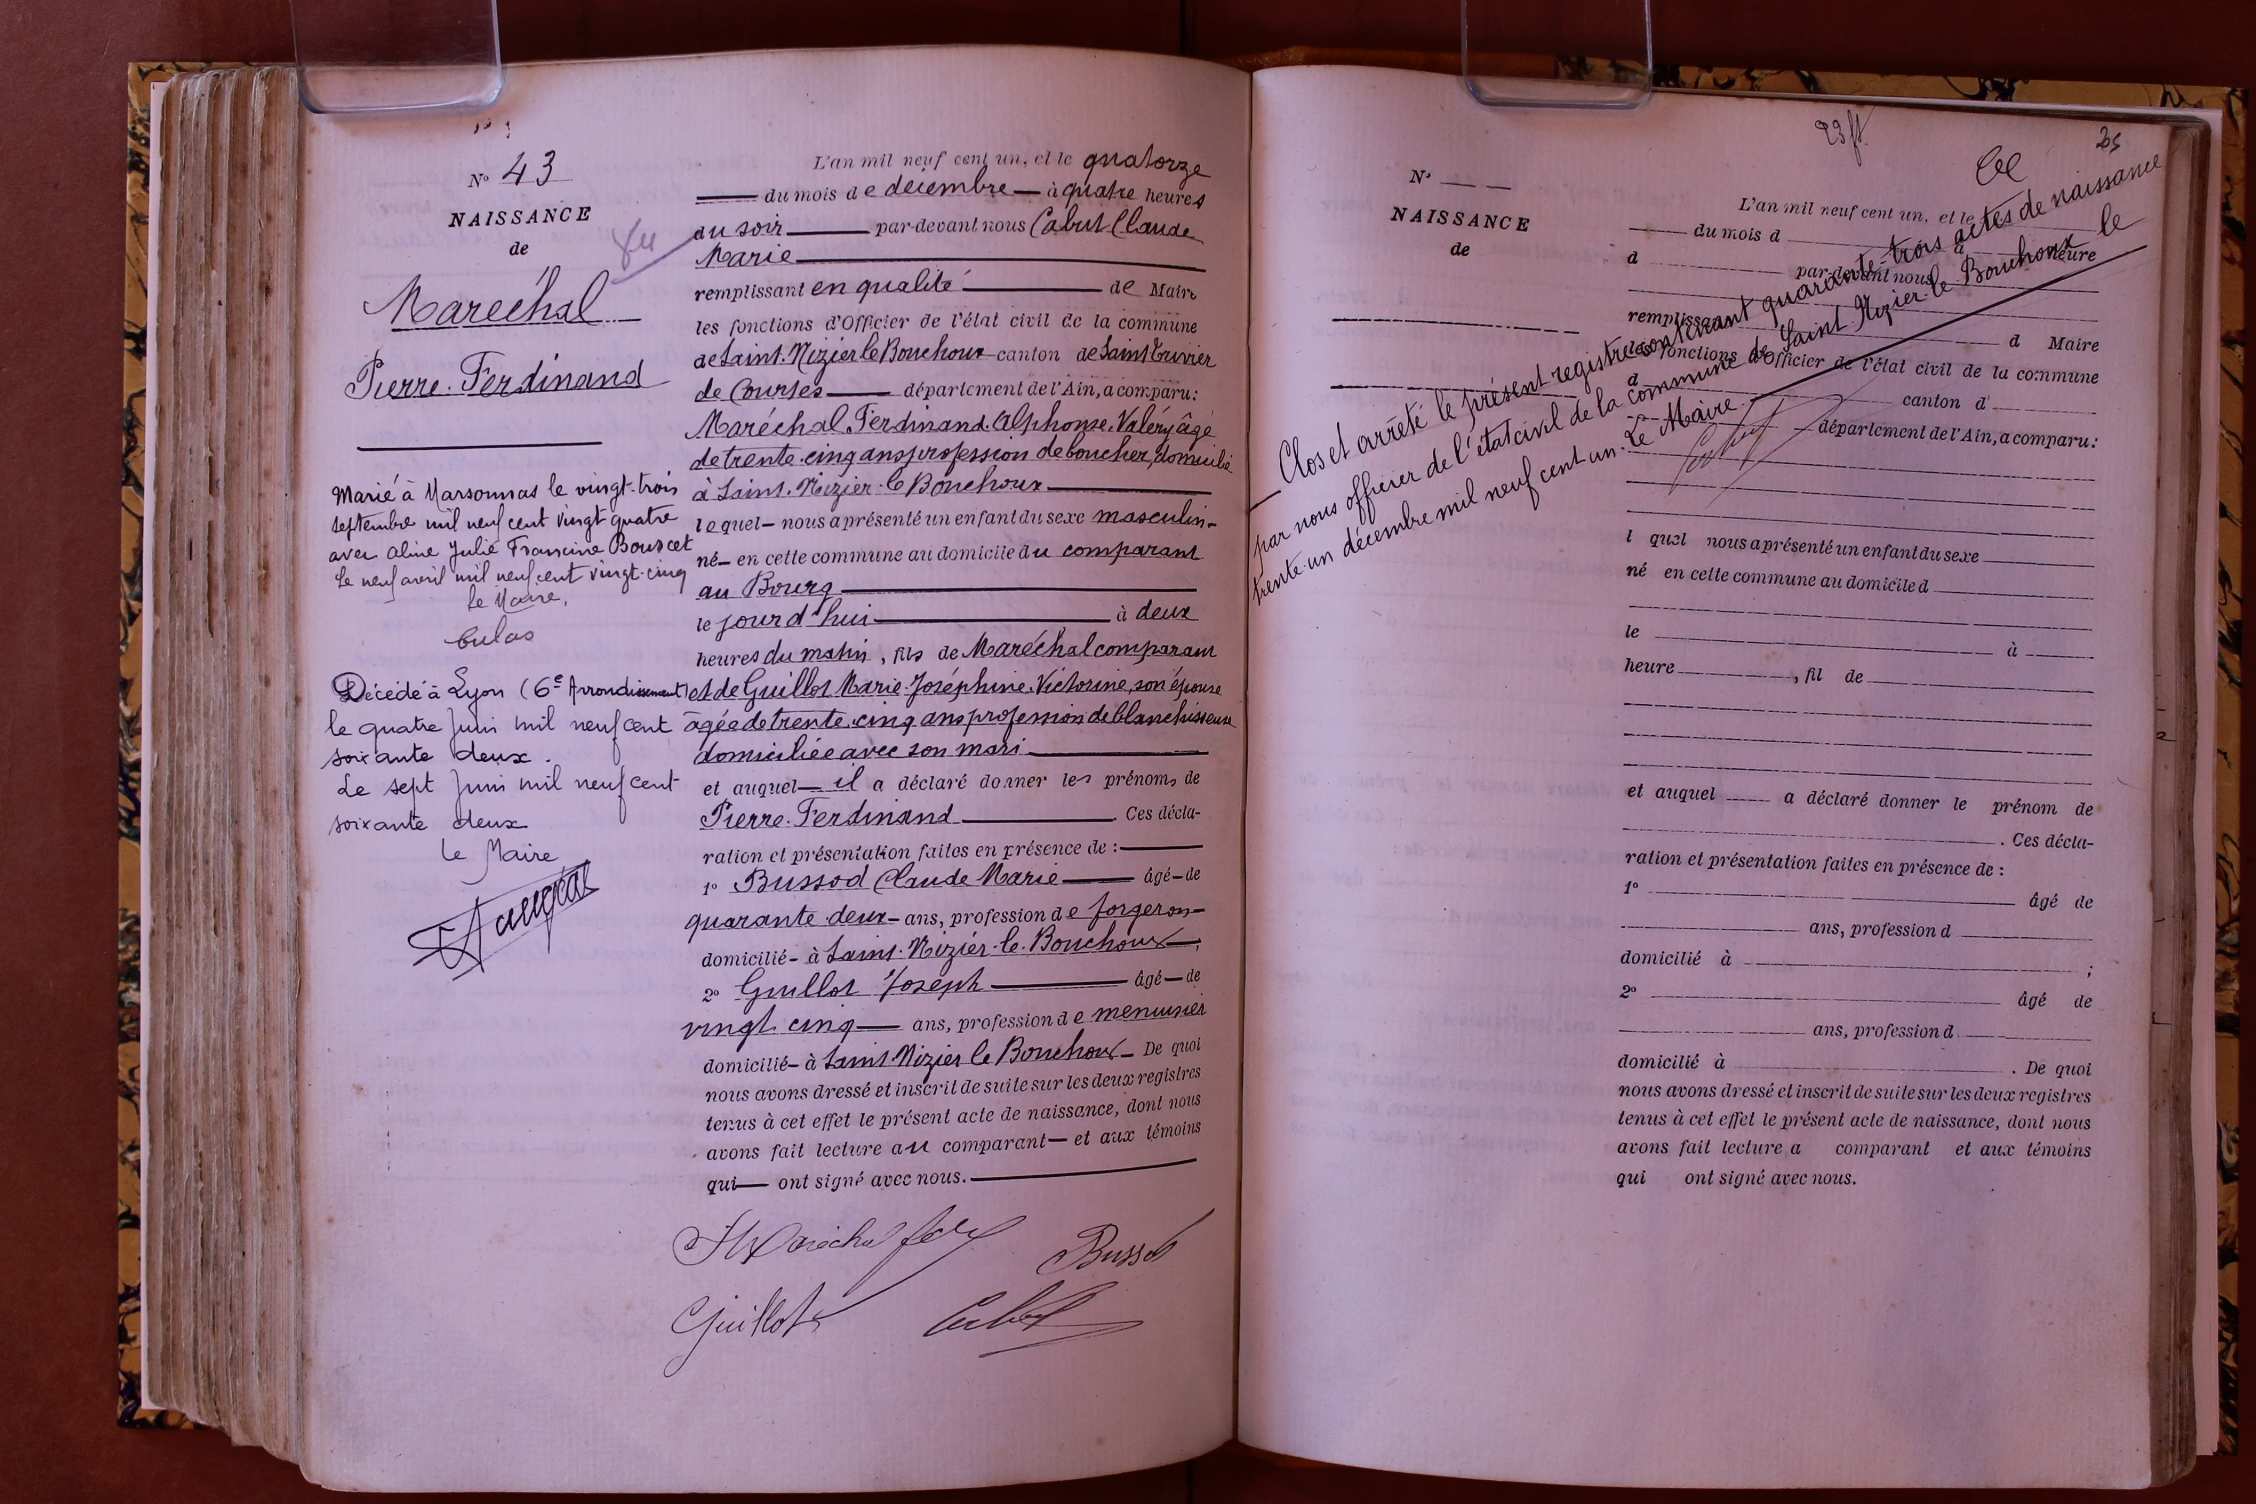 N° 43
NAISSANCE
de
Maréchal
Pierre. Ferdinand
Marié à Marsonnas le vingt-trois
septembre mil neuf cent vingt quatre
avec Aline Julie Francine Bourcet
Le neuf avril mil neuf cent vingt-cinq
Le Maire,
Décédé à Lyon (6e Arrondissement)
le quatre Juin mil neuf cent
soixante deux.
Le sept Juin mil neuf cent
soixante deux
Le Maire
L'an mil neuf cent un, et le quatorze
du mois de décembre à quatre heures
du soir par-devant nous Cabut Claude
Marie
remplissant en qualité de Maire
les fonctions d'Officier de l'état civil de la commune
de Saint-Nizier le Bouchoux canton de Saint Trivier
de Courtes département de l'Ain, a comparu:
Maréchal Ferdinand. Alphonse. Valéry âgé
de trente-cinq ans profession de boucher, domicilié
à Saint-Nizier-le Bouchoux
lequel nous a présenté un enfant du sexe masculin
né en cette commune au domicile du comparant
au Bourg
le jour d'hui à deux
heures du matin, fils de Maréchal comparant
et de Guillot Marie-Joséphine-Victorine, son épouse
âgée de trente-cinq ans profession de blanchisseuse
domiciliée avec son mari
et auquel il a déclaré donner les prénoms de
Pierre. Ferdinand. Ces décla-
ration et présentation faites en présence de :
1° Bussod Claude Marie âgé de
quarante-deux ans, profession de forgeron
domicilié à Saint-Nizier-le-Bouchoux ;
2° Guillot Joseph âgé de
vingt cinq ans, profession de menuisier
domicilié à Saint Nizier le Bouchoux. De quoi
nous avons dressé et inscrit de suite sur les deux registres
tenus à cet effet le présent acte de naissance, dont nous
avons fait lecture au comparant et aux témoins
qui ont signé avec nous.
Bussod
Guillot
Cabut
23 ft
25
N°
NAISSANCE
de
Clos et arrêté le présent registre contenant quarante-trois actes de naissance
par nous officier de l'état civil de la commune de Saint Nizier-le Bouchoux le
trente-un décembre mil neuf cent un. Le Maire
Cabut
L'an mil neuf cent un, et le
du mois d
à heure
d par-devant nous
remplissant
d Maire
les fonctions d'Officier de l'état civil de la commune
d canton d
département de l'Ain, a comparu:
l quel nous a présenté un enfant du sexe
né en cette commune au domicile d
le à
heure , fil de
et auquel a déclaré donner le prénom de
. Ces décla-
ration et présentation faites en présence de :
1° âgé de
ans, profession d
domicilié à ;
2° âgé de
ans, profession d
domicilié à . De quoi
nous avons dressé et inscrit de suite sur les deux registres
tenus à cet effet le présent acte de naissance, dont nous
avons fait lecture a comparant et aux témoins
qui ont signé avec nous.